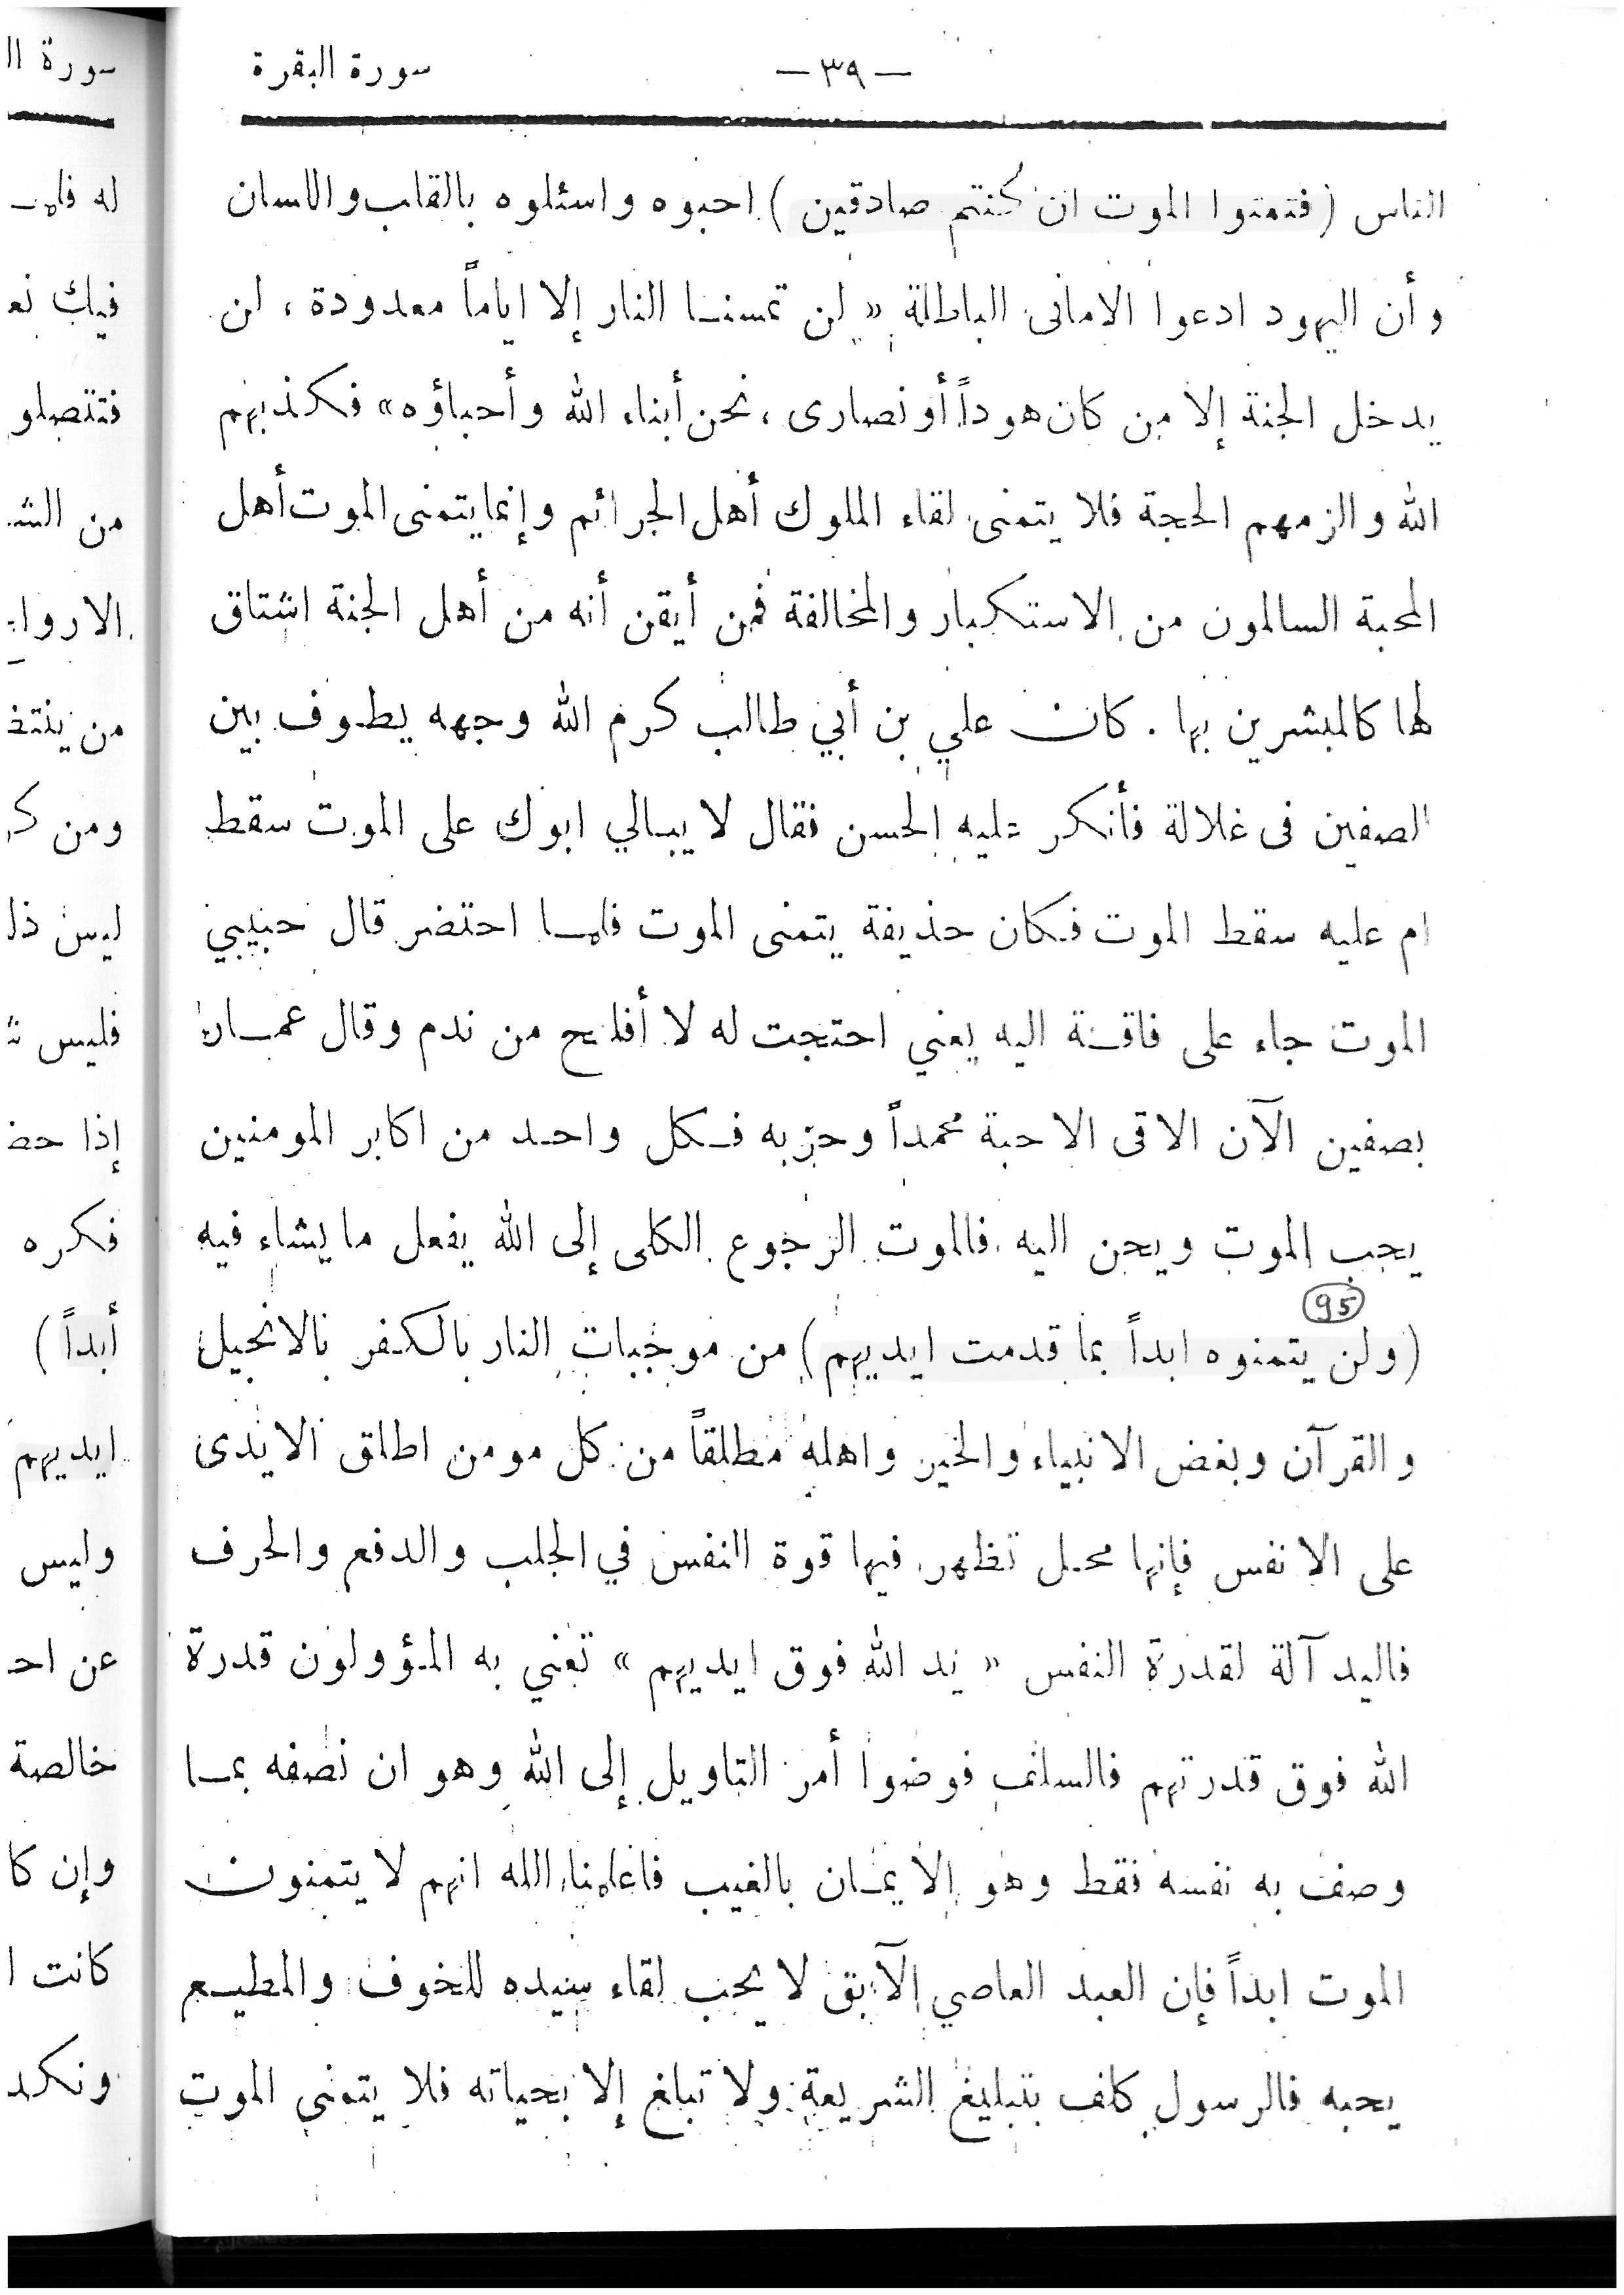 سورة البقرة
— ٣٩ —
الناس (فتمنوا الموت ان كنتم صادقين) احبوه واسئلوه بالقلب واللسان
وأن اليهود ادعوا الامانى الباطلة « لن تمسنا النار إلا اياماً معدودة ، لن
يدخل الجنة إلا من كان هوداً أو نصارى ، نحن أبناء الله وأحباؤه» فكذبهم
الله والزمهم الحجة فلا يتمنى لقاء الملوك أهل الجرائم وإنما يتمنى الموت أهل
المحبة السالمون من الاستكبار والمخالفة فمن أيقن أنه من أهل الجنة اشتاق
لها كالمبشرين بها . كان علي بن أبي طالب كرم الله وجهه يطوف بين
الصفين فى غلالة فأنكر عليه الحسن فقال لا يبالي ابوك على الموت سقط
ام عليه سقط الموت فكان حذيفة يتمنى الموت فلما احتضر قال حبيبي
الموت جاء على فاقة اليه يعني احتجت له لا أفلح من ندم وقال عمار
بصفين الآن الاقى الاحبة محمداً وحزبه فكل واحد من اكابر المومنين
يحب الموت ويحن اليه فالموت الرجوع الكلى إلى الله يفعل ما يشاء فيه
95
(ولن يتمنوه ابداً بما قدمت ايديهم) من موجبات النار بالكفر بالانجيل
والقرآن وبغض الانبياء والخير واهله مطلقاً من كل مومن اطلق الايدى
على الانفس فإنها محل تظهر فيها قوة النفس في الجلب والدفع والحرف
فاليد آلة لقدرة النفس « يد الله فوق ايديهم » تعني به المؤولون قدرة
الله فوق قدرتهم فالسلف فوضوا أمر التاويل إلى الله وهو ان نصفه بما
وصف به نفسه فقط وهو الايمان بالغيب فاعلمنا الله انهم لا يتمنون
الموت ابداً فإن العبد العاصي الآبق لا يحب لقاء سيده للخوف والمطيع
يحبه فالرسول كلف بتبليغ الشريعة ولا تبلغ إلا بحياته فلا يتمنى الموت
سورة ا
له فلم
فيك
من
ومن
ليس
فليس
إذا
فكره
أبداً)
ايديهم
وليس
عن
خالصة
وإن
كانت